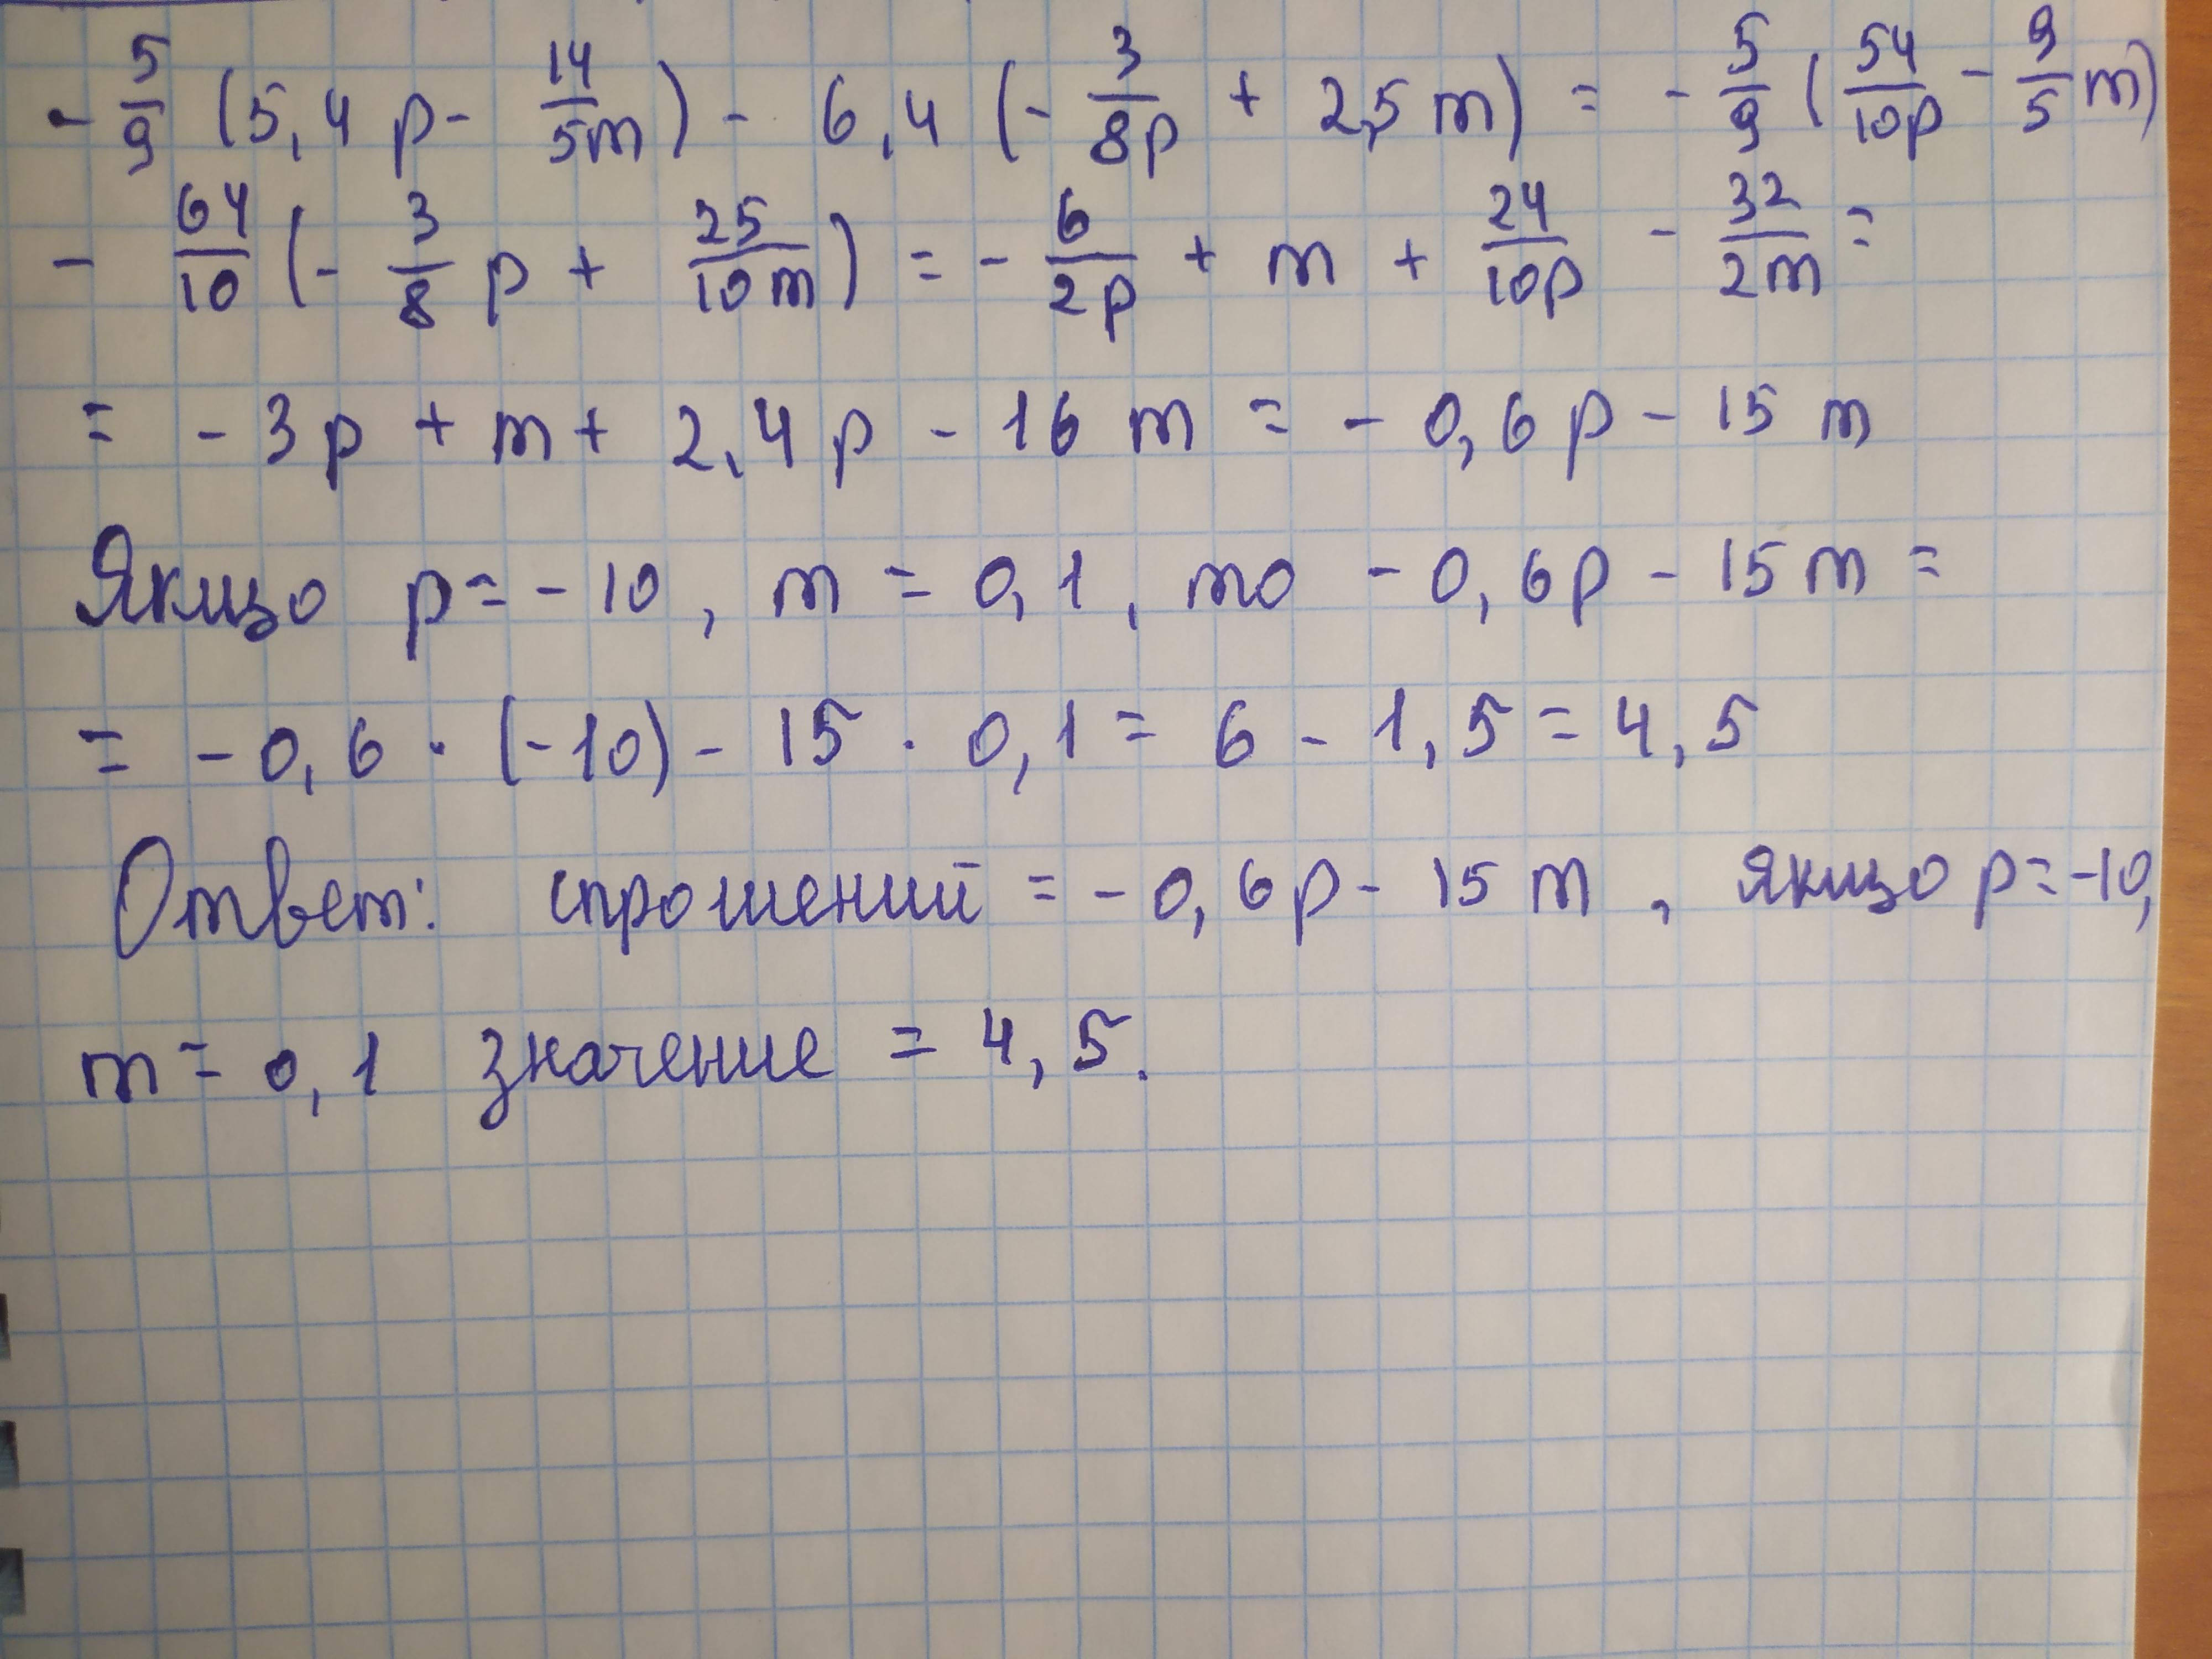 - 5/9 (5,4 p - 14/5m) - 6,4 (- 3/8p + 2,5 m) = - 5/9 (54/10p - 9/5 m)
- 64/10 (- 3/8 p + 25/10m) = - 6/2p + m + 24/10p - 32/2m =
= - 3p + m + 2,4p - 16 m = - 0,6p - 15 m
Якщо p = - 10, m = 0,1, то - 0,6p - 15m =
= - 0,6 · (-10) - 15 · 0,1 = 6 - 1,5 = 4,5
Ответ: спрошений = - 0,6p - 15 m, якщо p = -10,
m = 0,1 значение = 4,5.